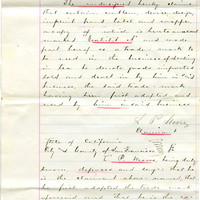 The undersigned hereby claims
that certain emblem, device, design,
imprint brand label and wrapper
a copy of which is hereto annexed
marked "Exhibit A"
fact hereof as a trade mark to be
used in the business of dealing
in tea to denote goods imported
sold and dealt in by him in said
business, the said trade mark
having been first adopted and
used by him in said business
L. P.
Claimant
State of California
City and County of San Francisco
L. P. being duly
sworn, deposes and says: that he
is the claimant above named, that
he first adopted the trade mark
aforesaid and That he is the